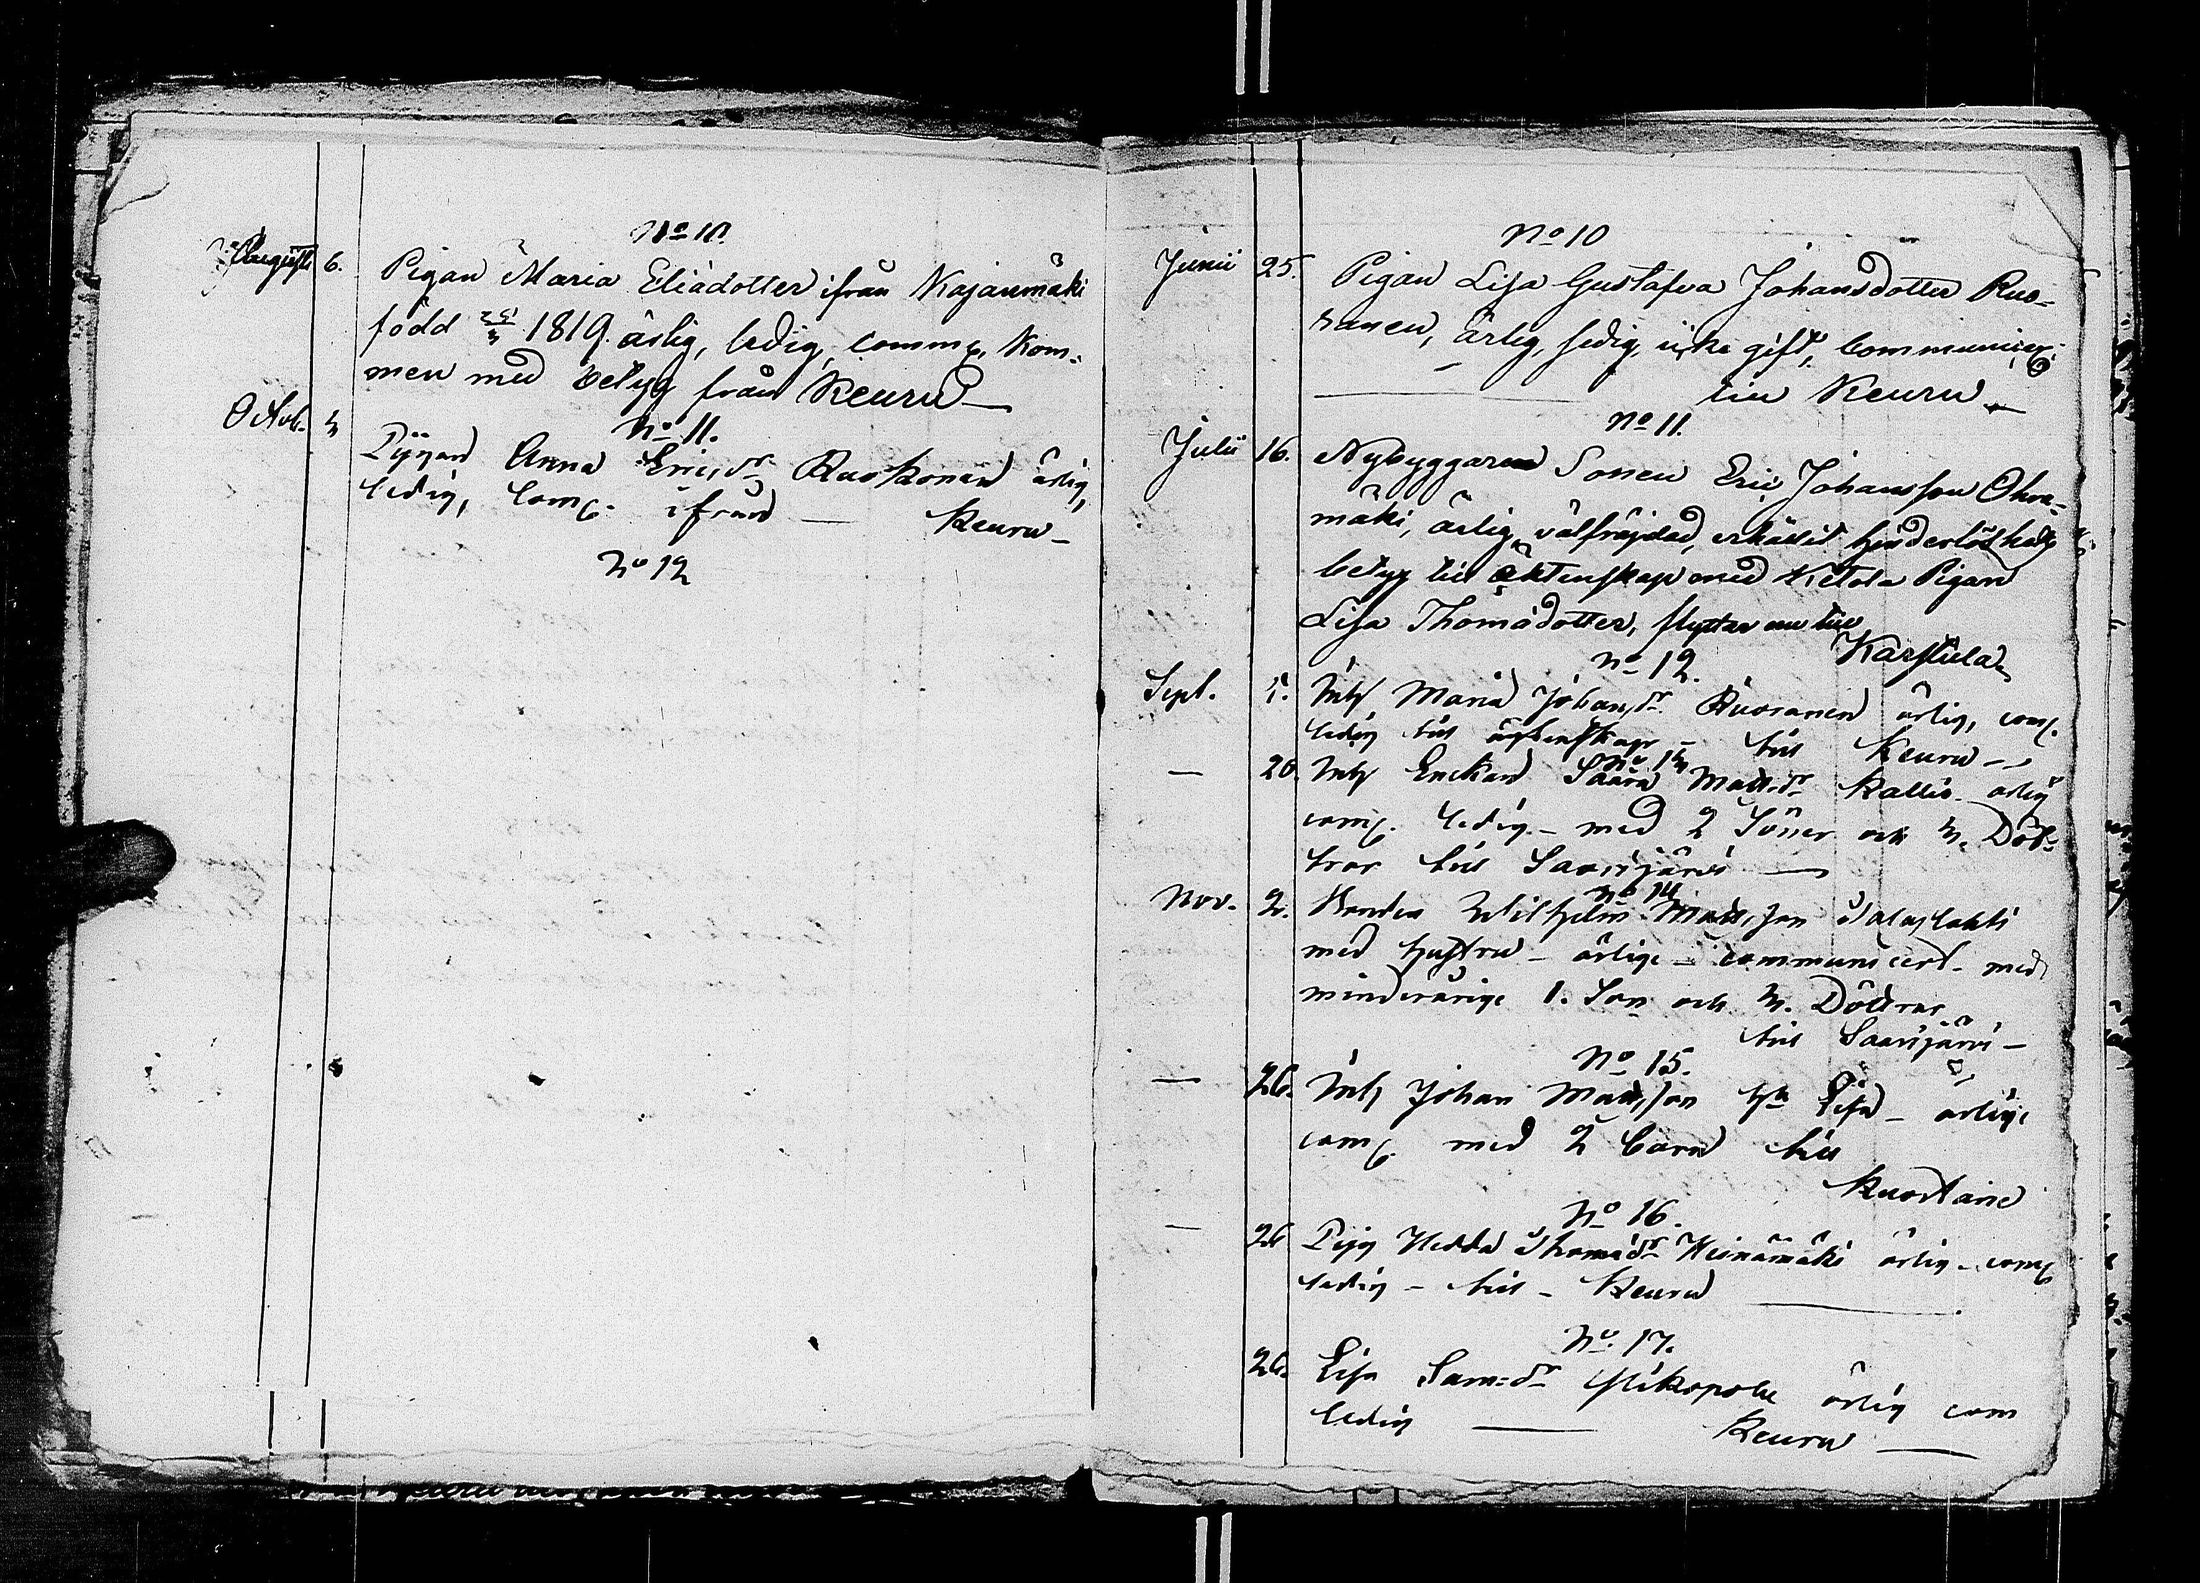 No 10.
Augusti 6. Pigan Maria Eliædotter ifrån Kajanmäki
född 25/3 1819. ärlig, ledig, commx. kom-
men med betyg från Keuru —
No 11.
Octob. 3 Pigan Anna Ericsdr Ruokonen ärlig,
ledig, comx. ifrån — Keuru —
No 12
No 10
Junii 25. Pigan Lisa Gustafva Johansdotter Ruo-
ranen, ärlig, ledig, icke gift, communicex.
— till Keuru —
No 11.
Julii 16. Nybyggaren Sonen Eric Johansson Ohra-
mäki, ärlig, välfräjdad, erhållit hinderlöshets
betyg till äktenskap med Ketola Pigan
Lisa Thomædotter, flyttar nu till
Karstula
No 12.
Sept. 5. Inhs Maria Johansdr. Ruoranen ärlig, comx.
ledig till äktenskap — till Keuru —
No 13
— 20. Inhs Enckan Saara Mattsdr Kallio ärlig
comx. ledig — med 2 Söner och 3. Döt-
trar till Saarijärvi —
No 14
Nov. 2. Bonden Wilhelm Mattsson
med hustru — ärlige — communicert. med
minderårige 1. Son och 3. Döttrar
till Saarijärvi —
No 15.
— 26. Inhs Johan Mattsson hu Lisa — ärlige
comx. med 2 barn till
Kuortane
No 16.
— 26 Pign Hedda Thomædr Heinämäki ärlig — comx
ledig — till — Keuru —
No. 17.
26. Lisa Sam:dr ärlig com
ledig — Keuru —